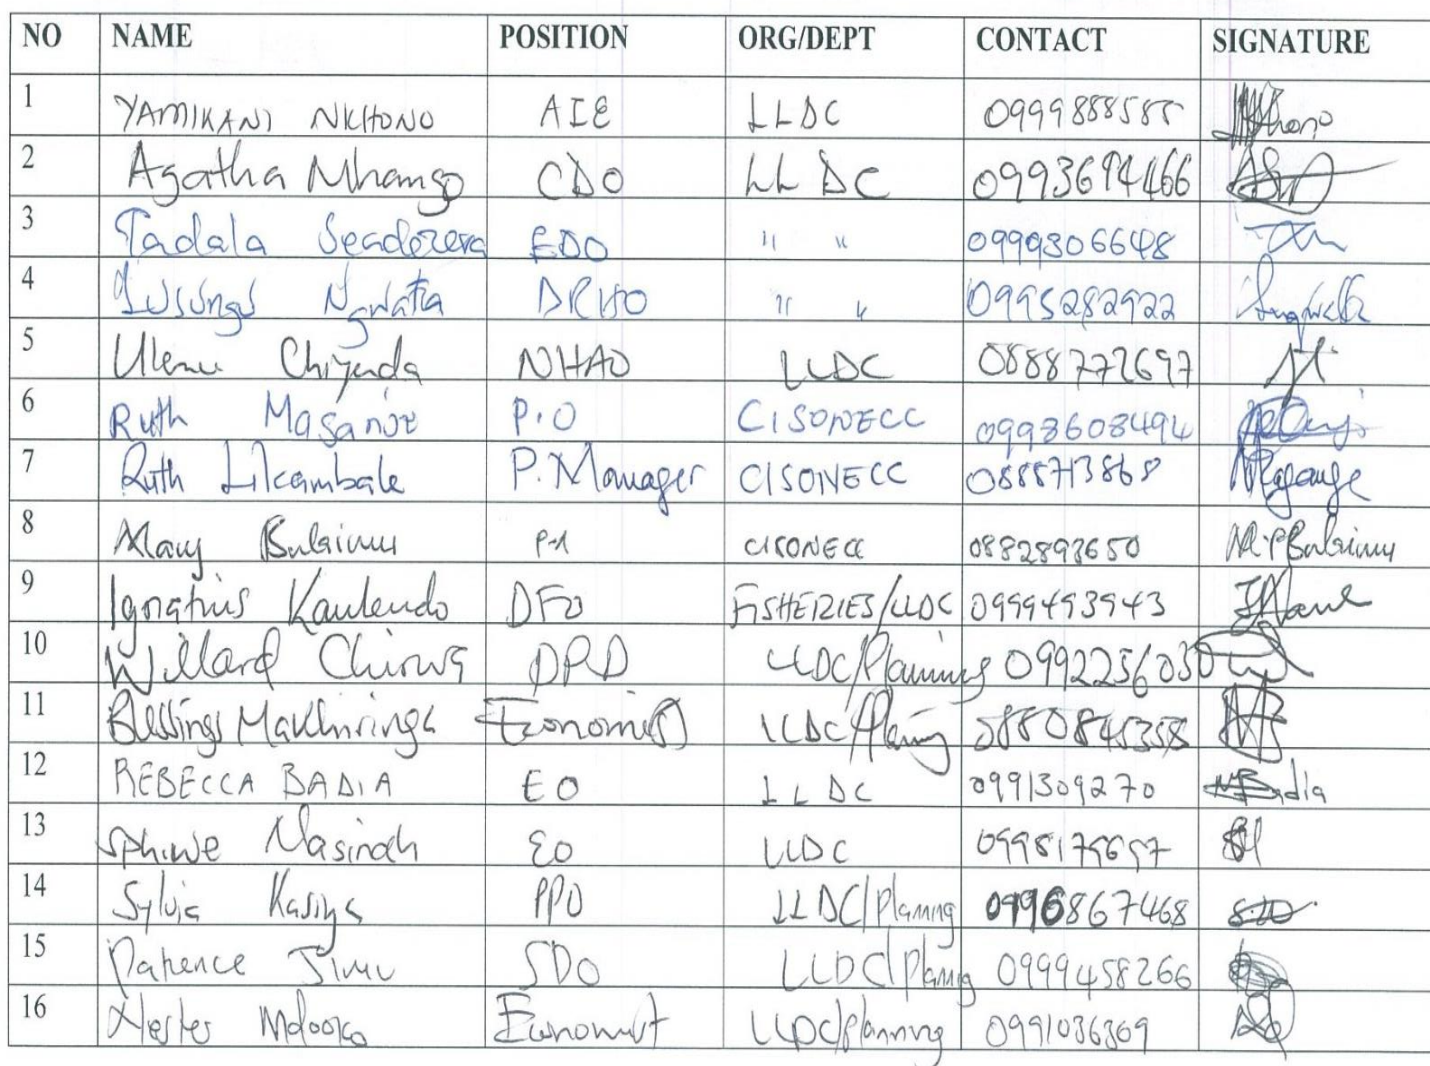 NO NAME POSITION ORG/DEPT CONTACT SIGNATURE
1 YAMIKANI NKHONO AIE LLDC 0999888585
2 Agatha Mhango CDO LLDC 0993694466
3 Tadala EDO " " 0999306648
4 Lusungu Ngwata DRHO " " 0995282922
5 Ulemu Chiyenda NHAO LLDC 0888772697
6 Ruth P.O CISONECC 0998608494
7 Ruth Likambale P. Manager CISONECC 0888713868
8 Mary CISONECC 0882893650
9 Ignatius Kaulendo DFO FISHERIES/LLDC 0999493943
10 Willard Chirwa DPD LLDC/Planning 0992256030
11 Blessings Makhiringa Economist LLDC/Planing 0880845358
12 REBECCA BADIA EO LLDC 0991309270
13 Sphiwe EO LLDC
14 Sylvia Kasiya PPO LLDC/Planning 0996867468
15 Patience Jimu SDO LLDC/Planig 0999458266
16 Economist LLDC/Planning 0991036369